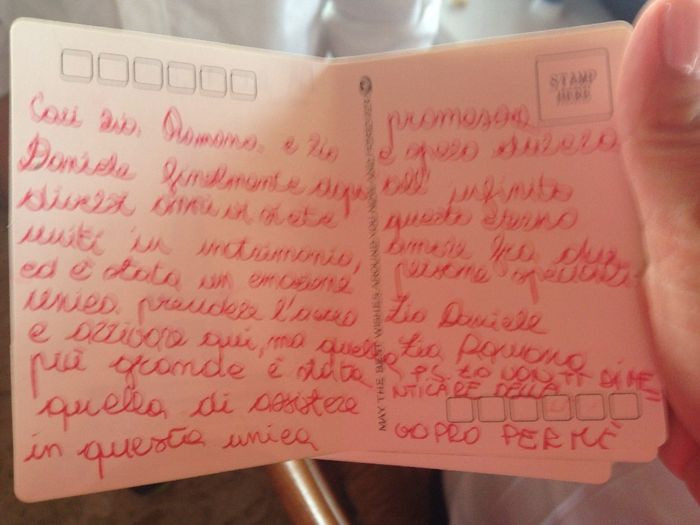 Cari zia Romana e zio
Daniele finalmente dopo
diversi anni vi siete
uniti in matrimonio,
ed è stata un emozione
unica prendere l'aereo
e arrivare qui, ma quella
più grande è stata
quella di assistere
in questa unica
promessa
e spero durera
all' infinito
questo eterno
amore fra due
persone speciali
Zio Daniele
Zia Romana
PS. ZO NON TI DIME
NTICARE DELLA
GOPRO PER ME
STAMP
HERE
MAY THE BEST WISHES AROUND YOU NOW AND FOREVER